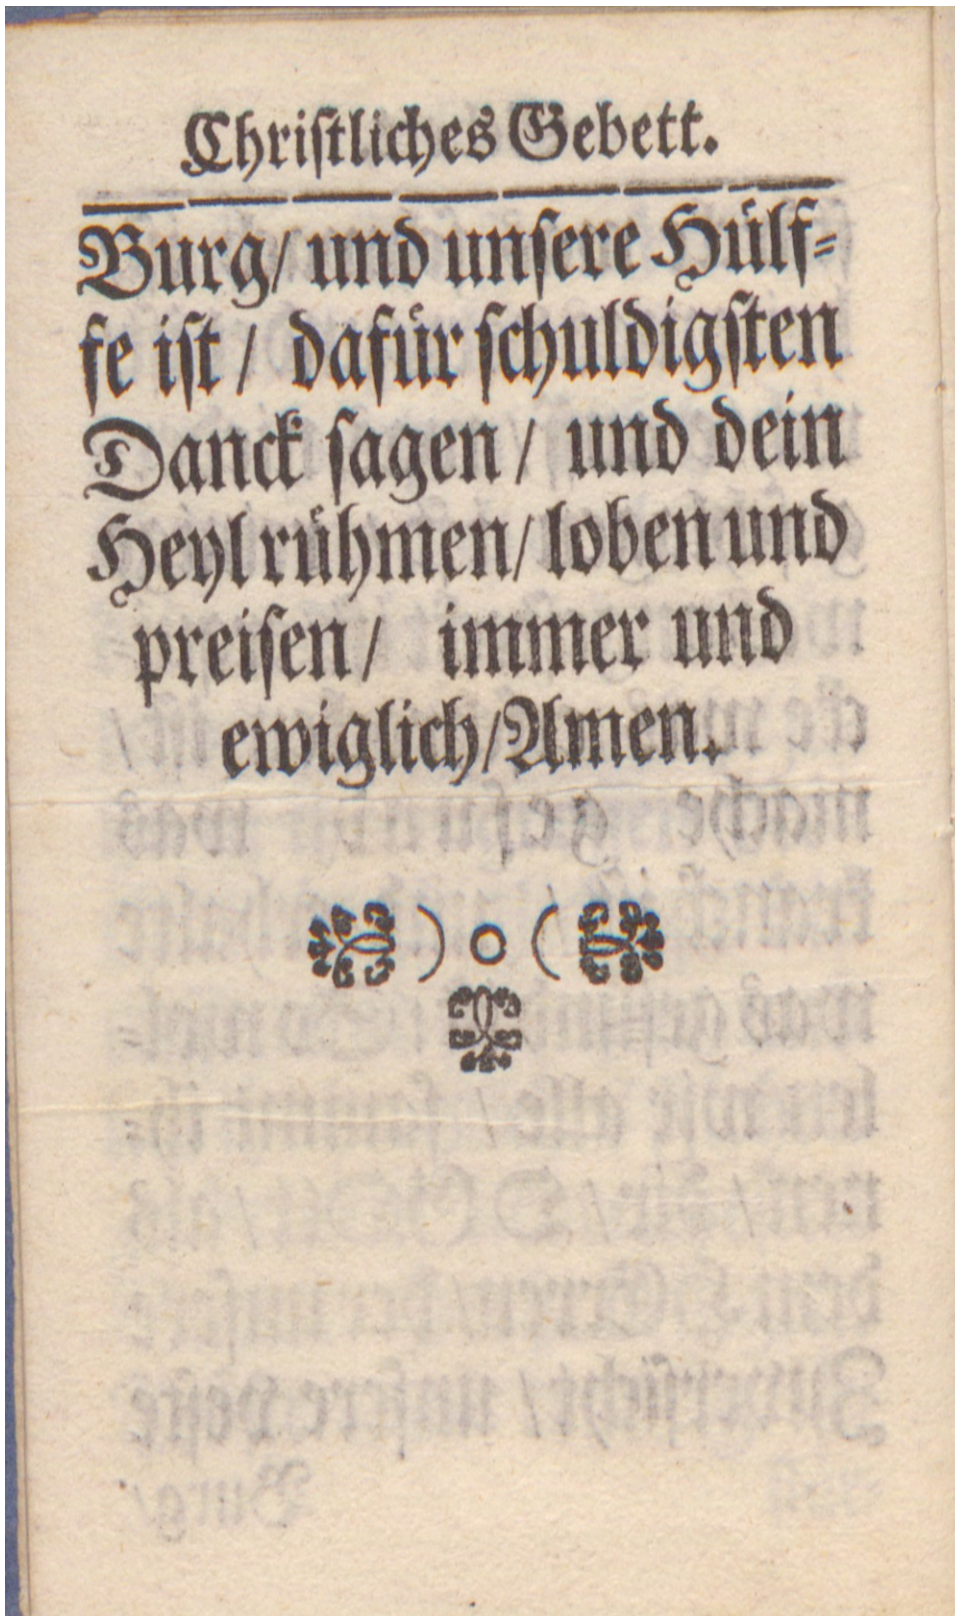 Chriſtliches Gebett.
Burg/ und unſere Hülf⸗
fe iſt / dafür ſchuldigſten
Danck ſagen / und dein
Heyl rühmen/ loben und
preiſen / immer und
ewiglich/ Amen.
) o (